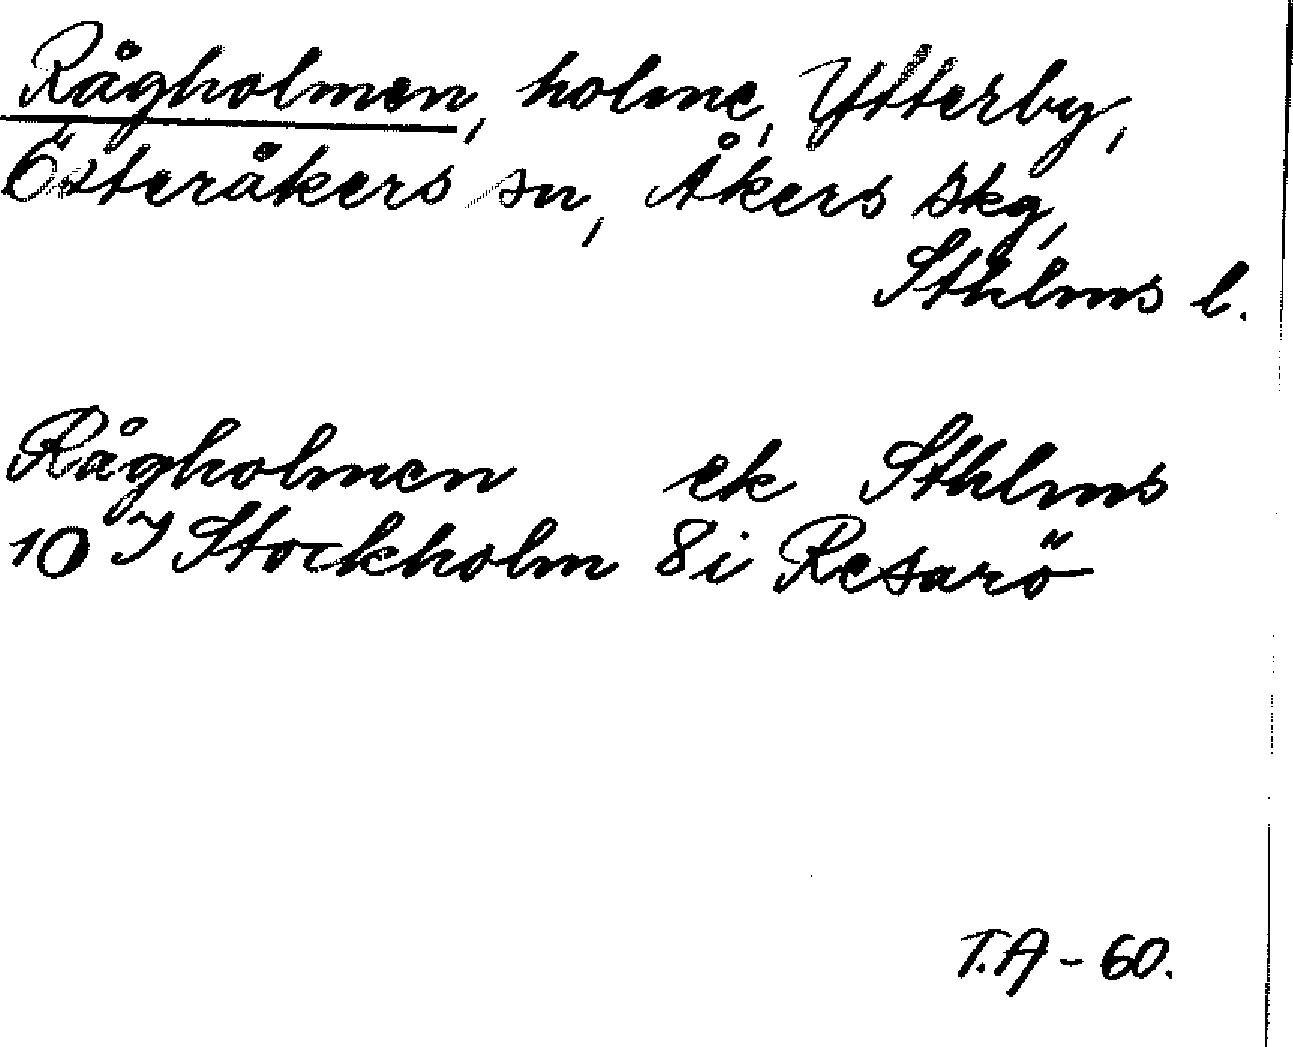 Rågholmen, holme, Ytterby,
Österåkers sn, Åkers skg,
Sthlms l.
Rågholmen ek Sthlms
10 I Stockholm 8i Resarö
T.A - 60.